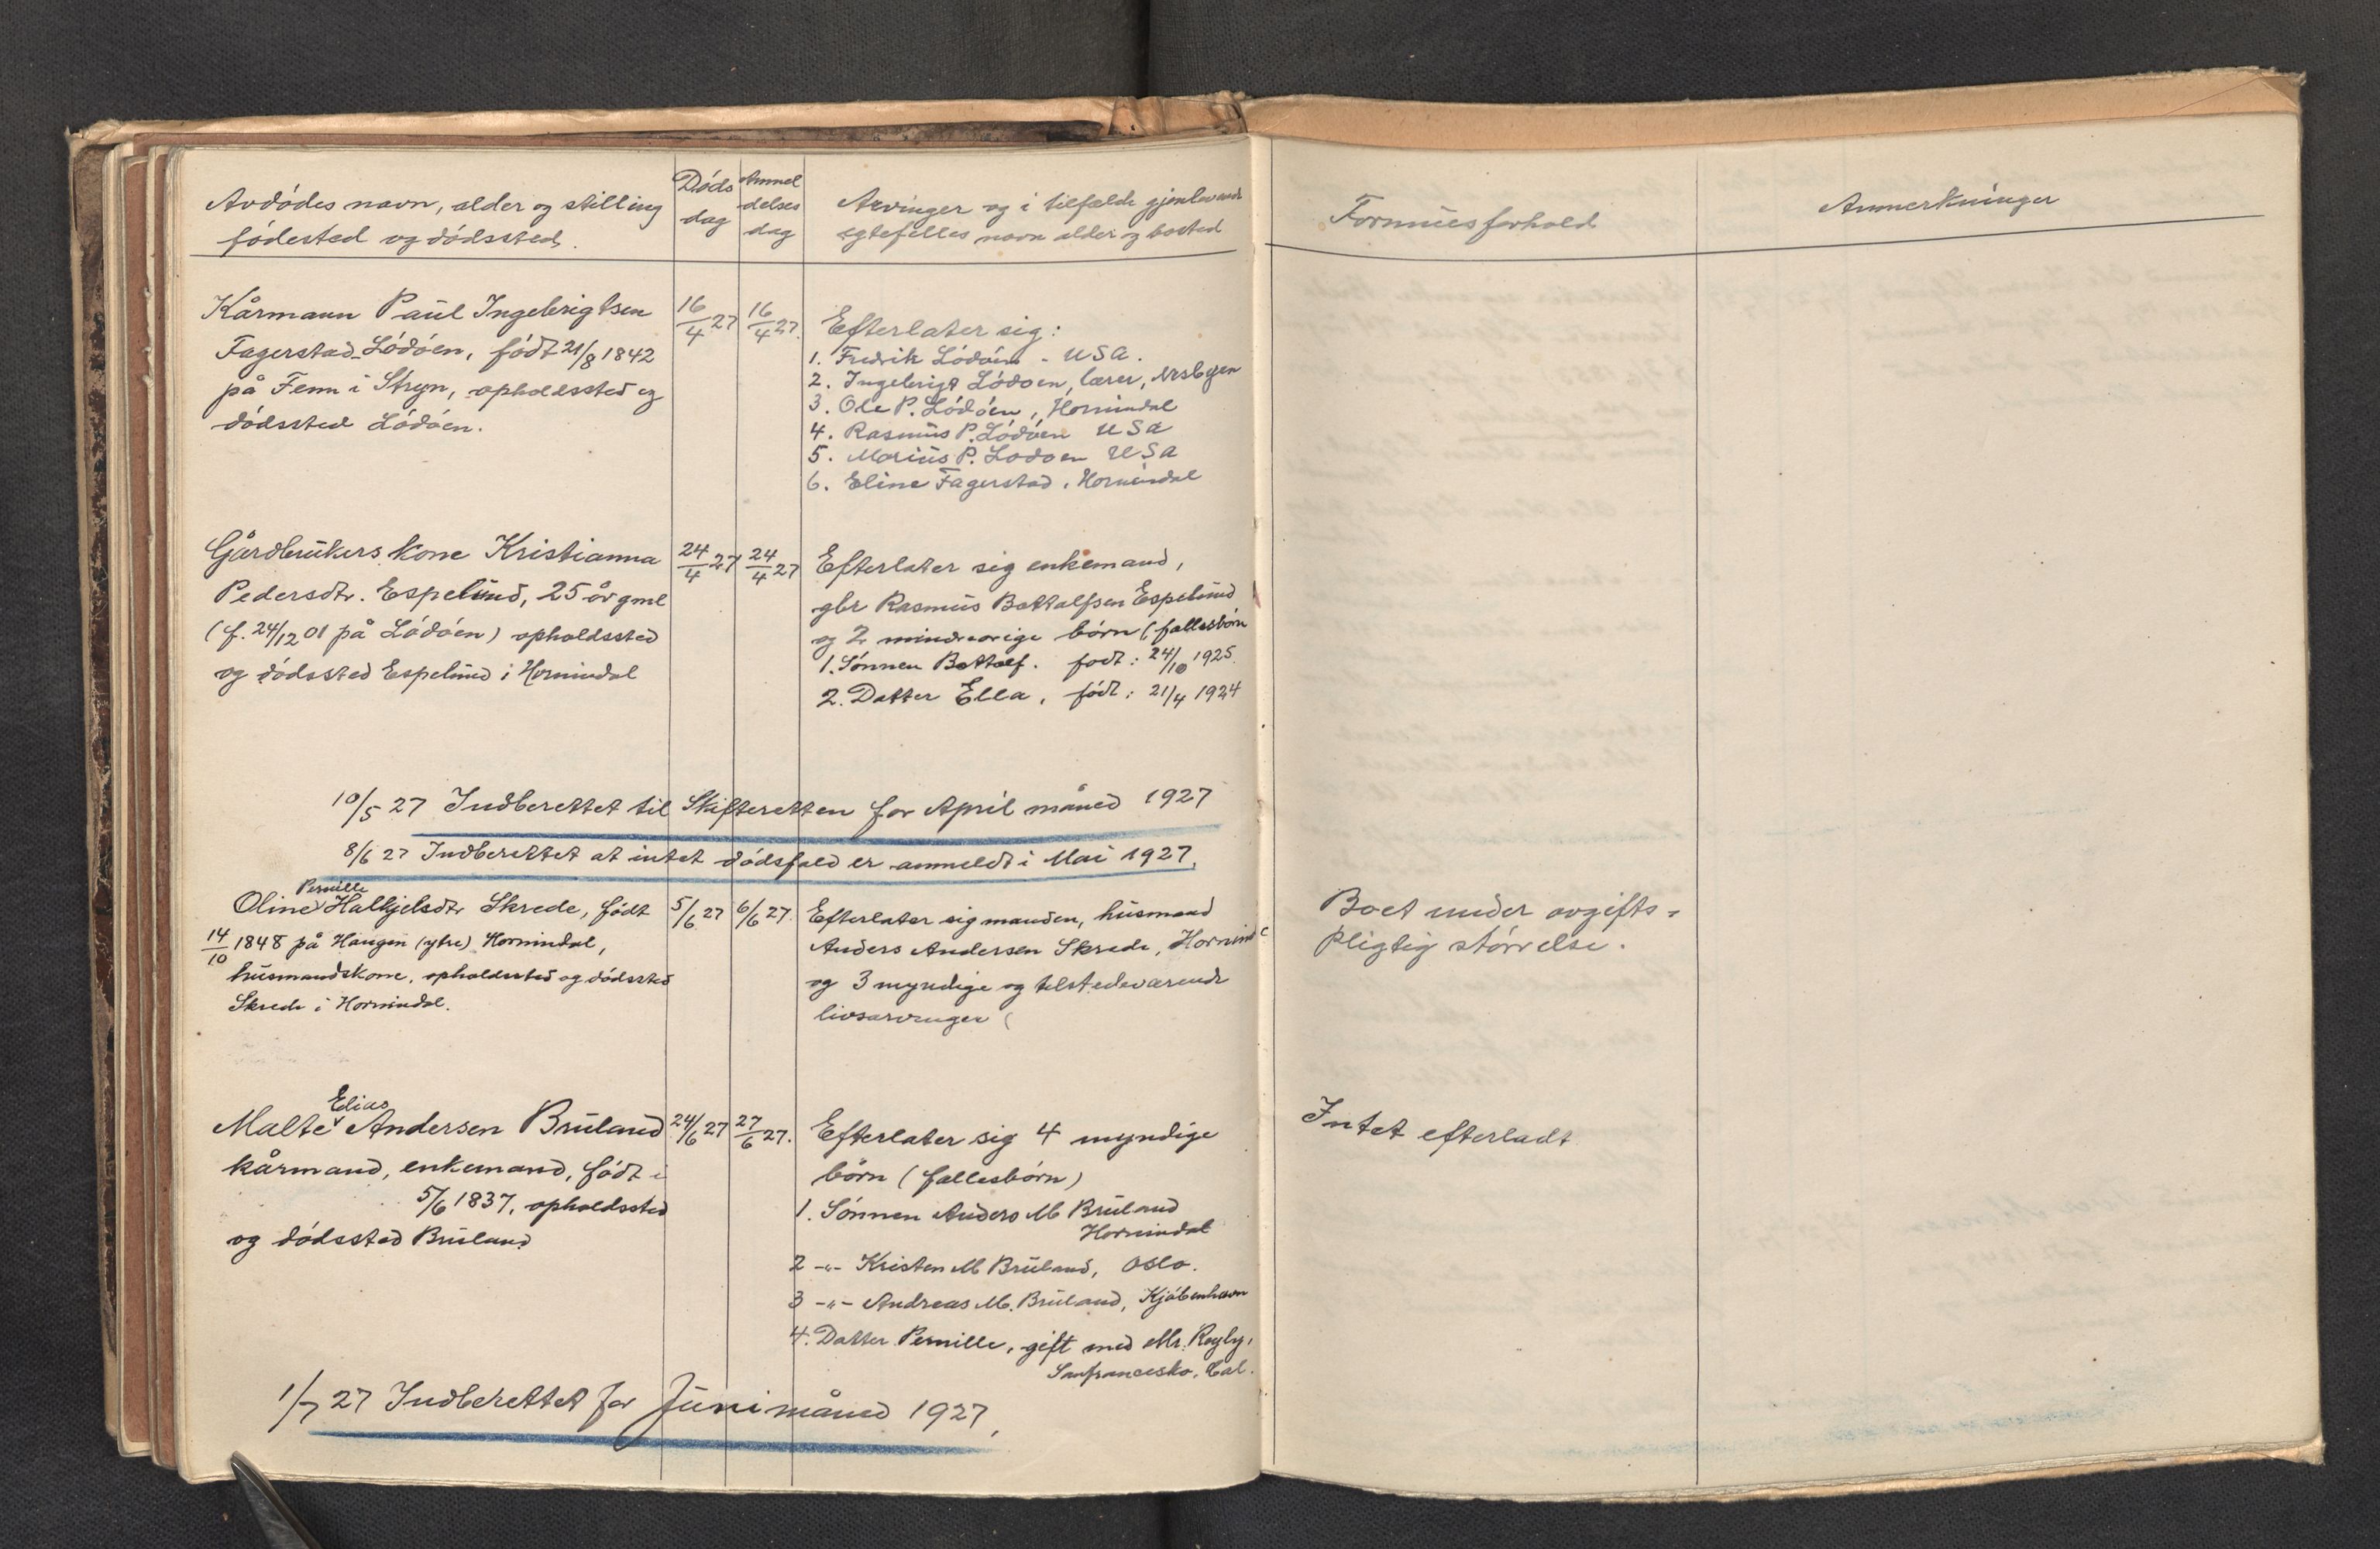 Avdódes navn, alder og stilling
fódested og dódssted.
Dóds
dag
Anmel
delses
dag
Arvinger og i tilfælde gjenlevende
egtefelles navn alder og bosted
Formuesforhold
Anmerkninger
Kårmann Paul Ingebrigtsen
Fagerstad-Lódóen, fódt 21/8 1842
på Fenn i Stryn, opholdssted og
dódssted Lódóen.
16/4 27
16/4 27.
Efterlater sig:
1. Fredrik Lódóen - USA.
2. Ingebrigt Lódoen, lærer, Nesbyen
3. Ole P. Lódóen, Hornindal
4. Rasmus P. Lódóen USA
5. Marius P. Lodoen USA
6. Eline Fagerstad, Hornindal
Gårdbrukers kone Kristianna
Pedersdtr. Espelund, 25 år gml
(f. 24/12 01 på Lódóen) opholdssted
og dódssted Espelund i Hornindal
24/4 27
24/4 27
Efterlater sig enkemand,
gbr Rasmus Bottolfsen Espelund
og 2 mindreårige børn (fællesbórn
1. Sónnen Bottolf. fodt: 24/10 1925.
2. Datter Ella, fódt: 21/4 1924
10/5 27 Indberettet til Skifteretten for April måned 1927
8/6 27 Indberettet at intet dódsfald er anmeldt i Mai 1927.
Pernille
Oline Halkjelsdtr Skrede, fódt
14/10 1848 på Haugen (ytre) Hornindal,
husmandskone, opholdssted og dódssted
Skrede i Hornindal.
5/6 27
6/6 27.
Efterlater sig manden, husmand
Anders Andersen Skrede, Hornind
og 3 myndige og tilstedeværende
livsarvinger (
Boet under avgifts-
pligtig stórrelse.
Elias
Malte Andersen Bruland
kårmand, enkemand, fódt i
5/6 1837, opholdssted
og dódssted Bruland
24/6 27
27/6 27.
Efterlater sig 4 myndige
børn (fællesbórn)
1. Sónnen Anders M Bruland
Hornindal
2 -"- Kristen M Bruland, Oslo.
3 -"- Andreas M. Bruland, Kjóbenhavn
4. Datter Pernille, gift med Mr.
Sanfrancesko, Cal.
Intet efterladt
1/7 27 Indberettet for Juni måned 1927,